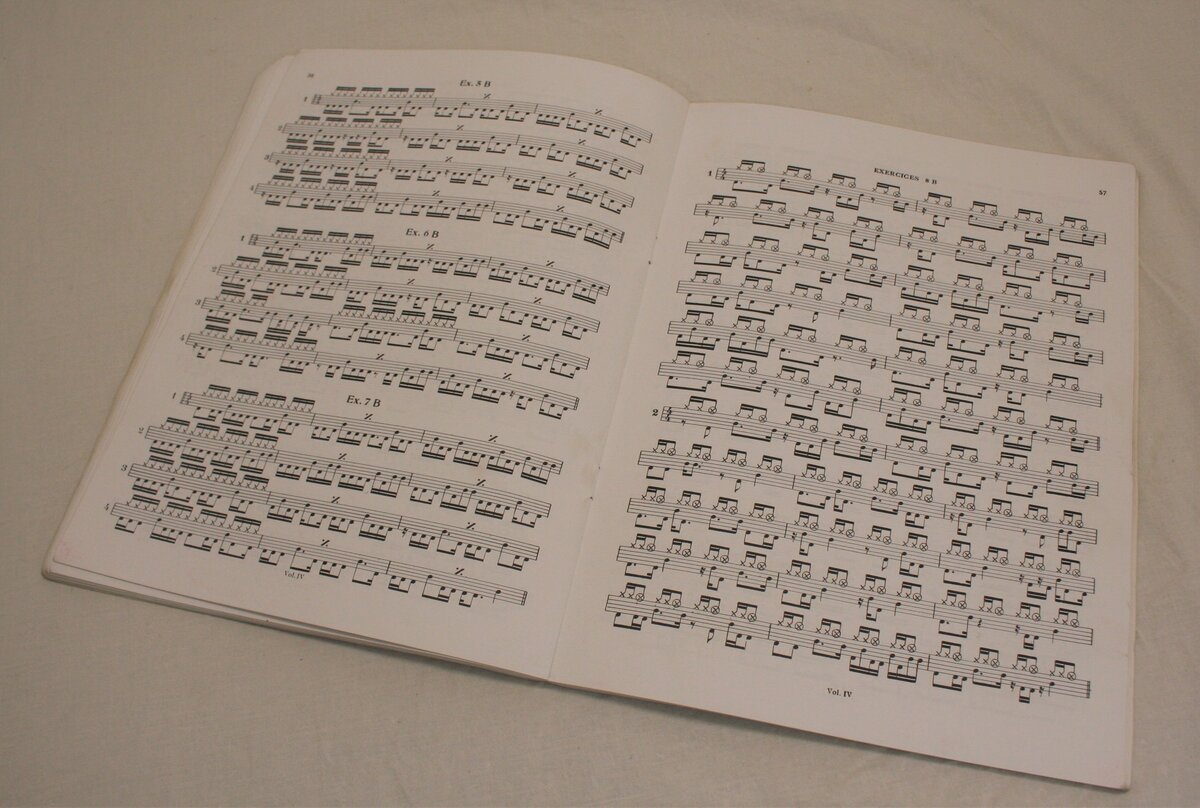 Ex. 5 B
1
2
3
4
Ex. 6 B
1
2
3
4
Ex. 7 B
1
2
3
4
Vol. IV
EXERCICES 8 B
57
1
2
Vol. IV